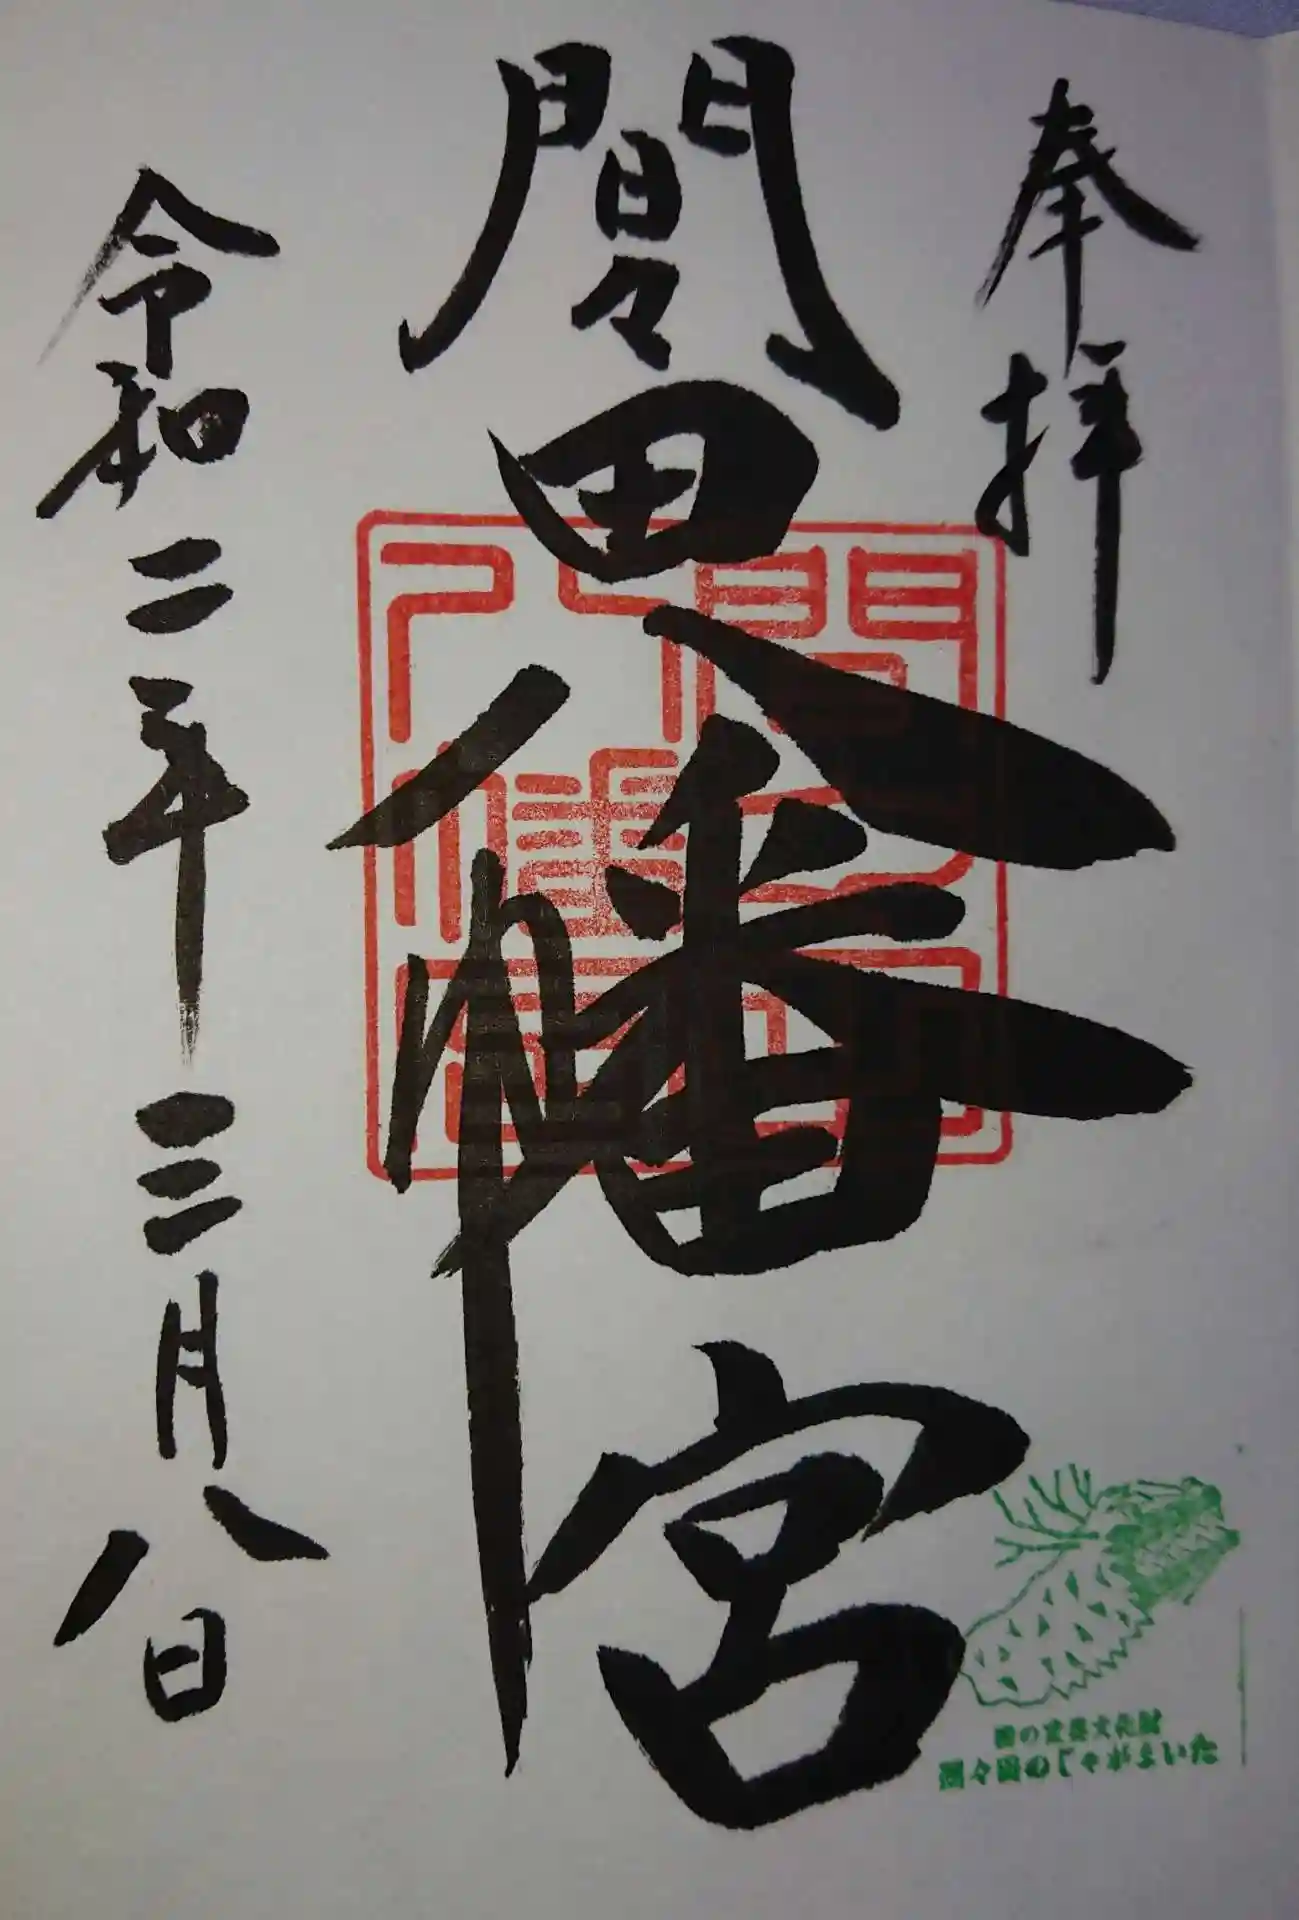 奉拝
間々田八幡宮
令和二年三月八日
間々田八幡宮
国の重要文化財
間々田のじゃがまいた